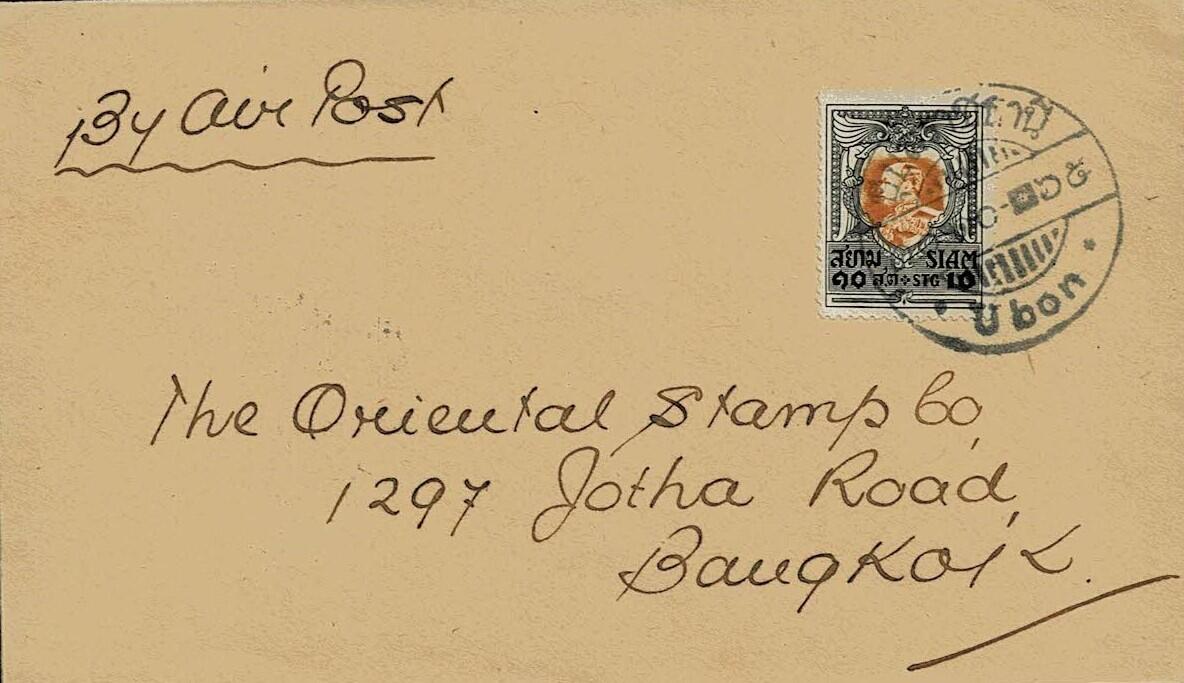 By Air Post
สยาม SIAM
๑๐ สต STG 10
Ubon
The Oriental Stamp Co,
1297 Jotha Road,
Bangkok.